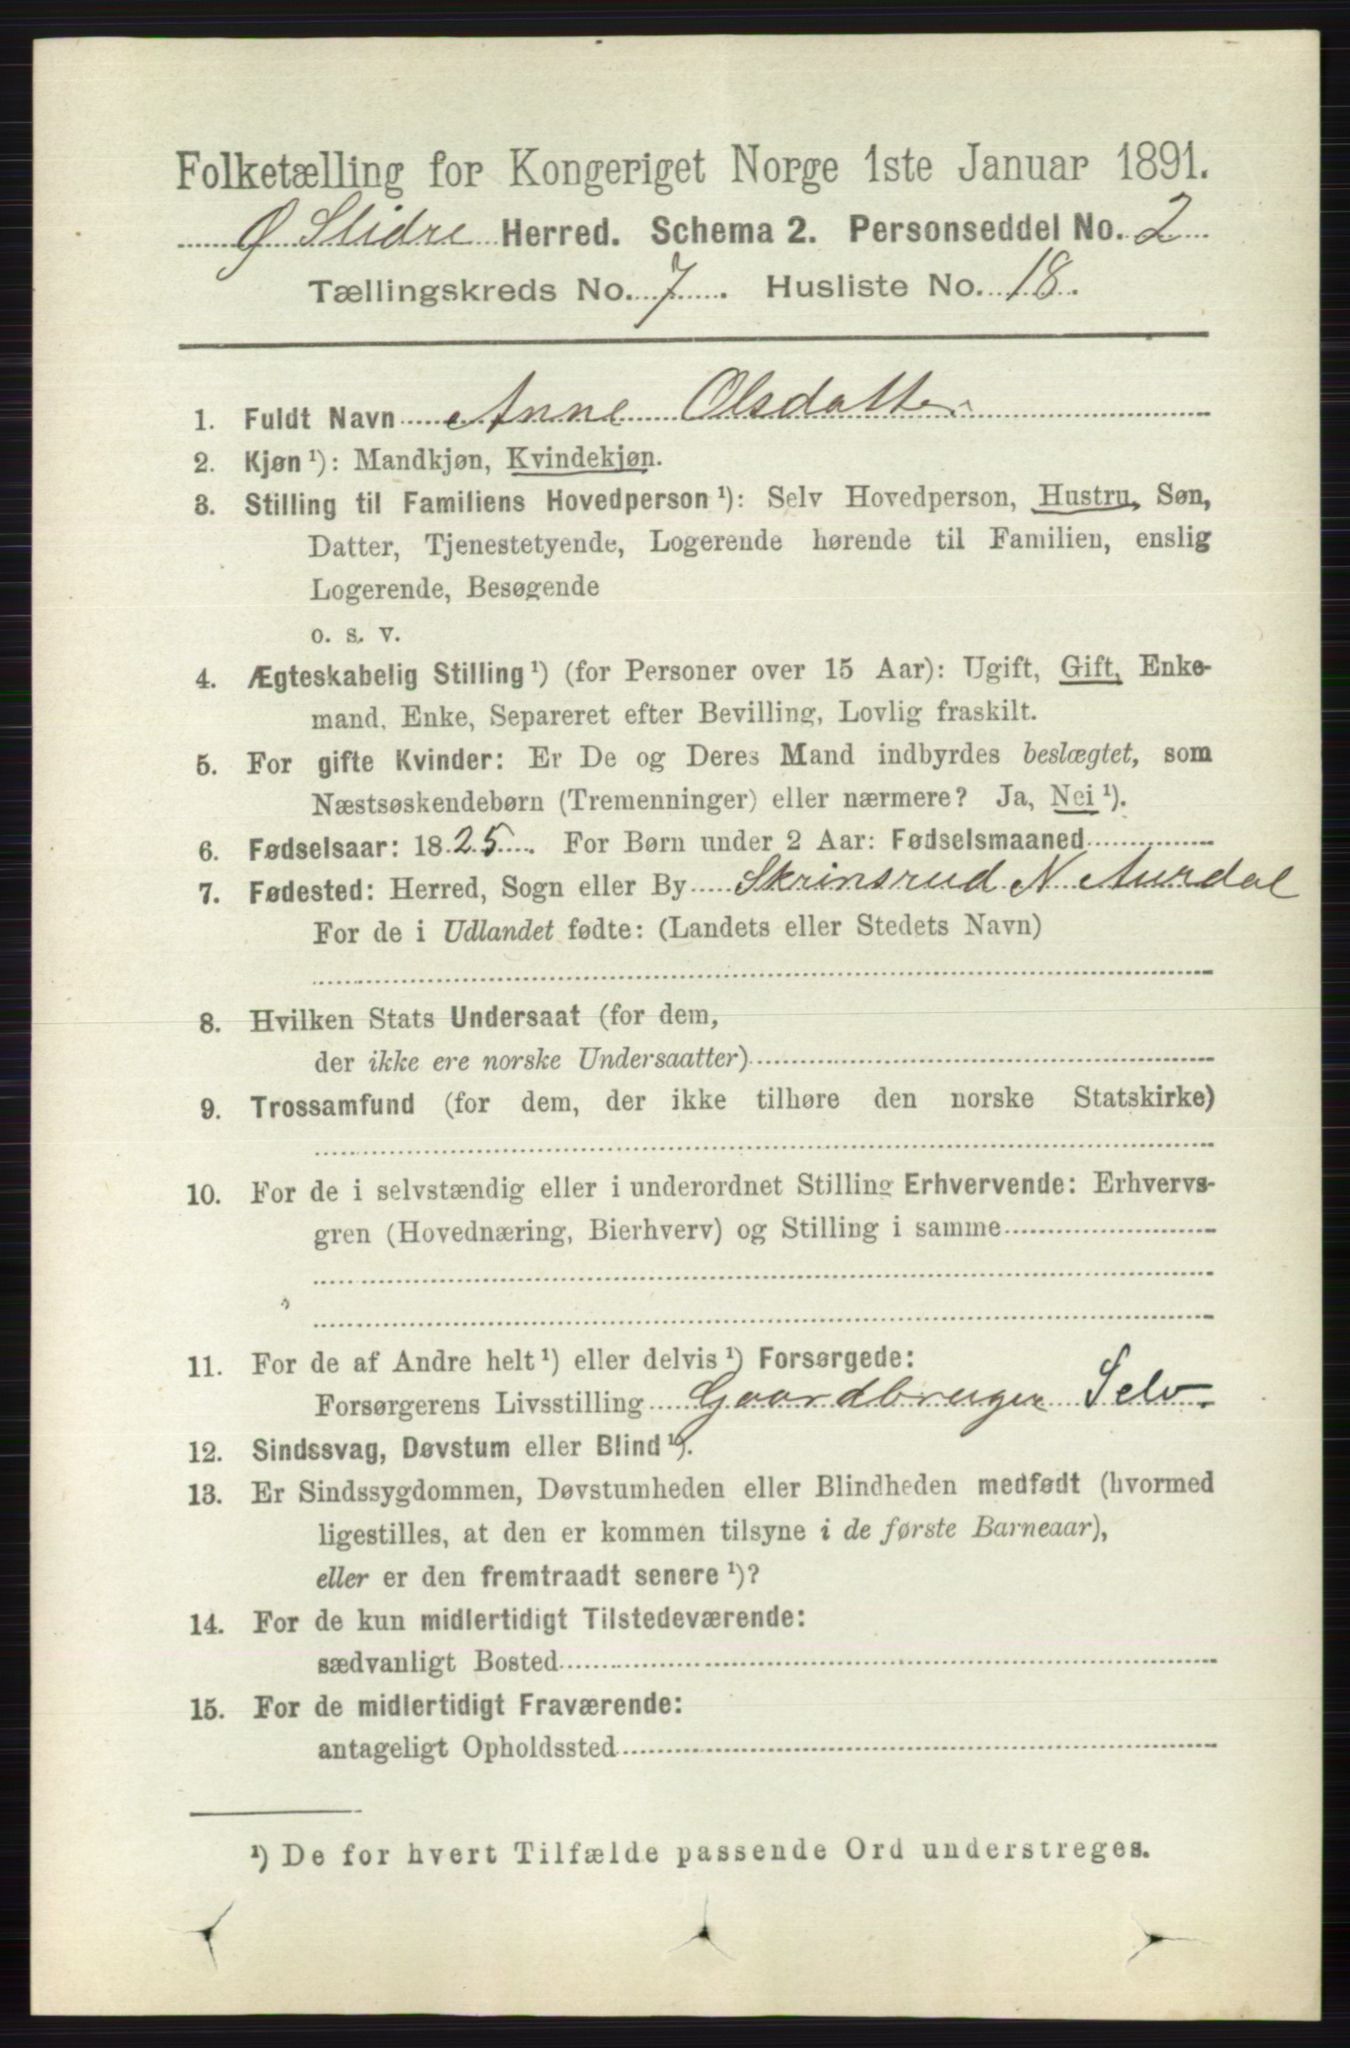 Folketælling for Kongeriget Norge 1ste Januar 1891.
Ø Slidre Herred. Schema 2. Personseddel No. 2
Tællingskreds No. 7. Husliste No. 18.
1. Fuldt Navn Anne Olsdatter
2. Kjøn ¹): Mandkjøn, Kvindekjøn.
3. Stilling til Familiens Hovedperson ¹): Selv Hovedperson, Hustru, Søn,
Datter, Tjenestetyende, Logerende hørende til Familien, enslig
Logerende, Besøgende
o. s. v.
4. Ægteskabelig Stilling ¹) (for Personer over 15 Aar): Ugift, Gift, Enke-
mand, Enke, Separeret efter Bevilling, Lovlig fraskilt.
5. For gifte Kvinder: Er De og Deres Mand indbyrdes beslægtet, som
Næstsøskendebørn (Tremenninger) eller nærmere? Ja, Nei ¹).
6. Fødselsaar: 1825. For Børn under 2 Aar: Fødselsmaaned
7. Fødested: Herred, Sogn eller By Skrinsrud N. Aurdal
For de i Udlandet fødte: (Landets eller Stedets Navn)
8. Hvilken Stats Undersaat (for dem,
der ikke ere norske Undersaatter)
9. Trossamfund (for dem, der ikke tilhøre den norske Statskirke)
10. For de i selvstændig eller i underordnet Stilling Erhvervende: Erhvervs-
gren (Hovednæring, Bierhverv) og Stilling i samme
11. For de af Andre helt ¹) eller delvis ¹) Forsørgede:
Forsørgerens Livsstilling Gaardbruger Selv.
12. Sindssvag, Døvstum eller Blind ¹).
13. Er Sindssygdommen, Døvstumheden eller Blindheden medfødt (hvormed
ligestilles, at den er kommen tilsyne i de første Barneaar),
eller er den fremtraadt senere ¹)?
14. For de kun midlertidigt Tilstedeværende:
sædvanligt Bosted
15. For de midlertidigt Fraværende:
antageligt Opholdssted
¹) De for hvert Tilfælde passende Ord understreges.